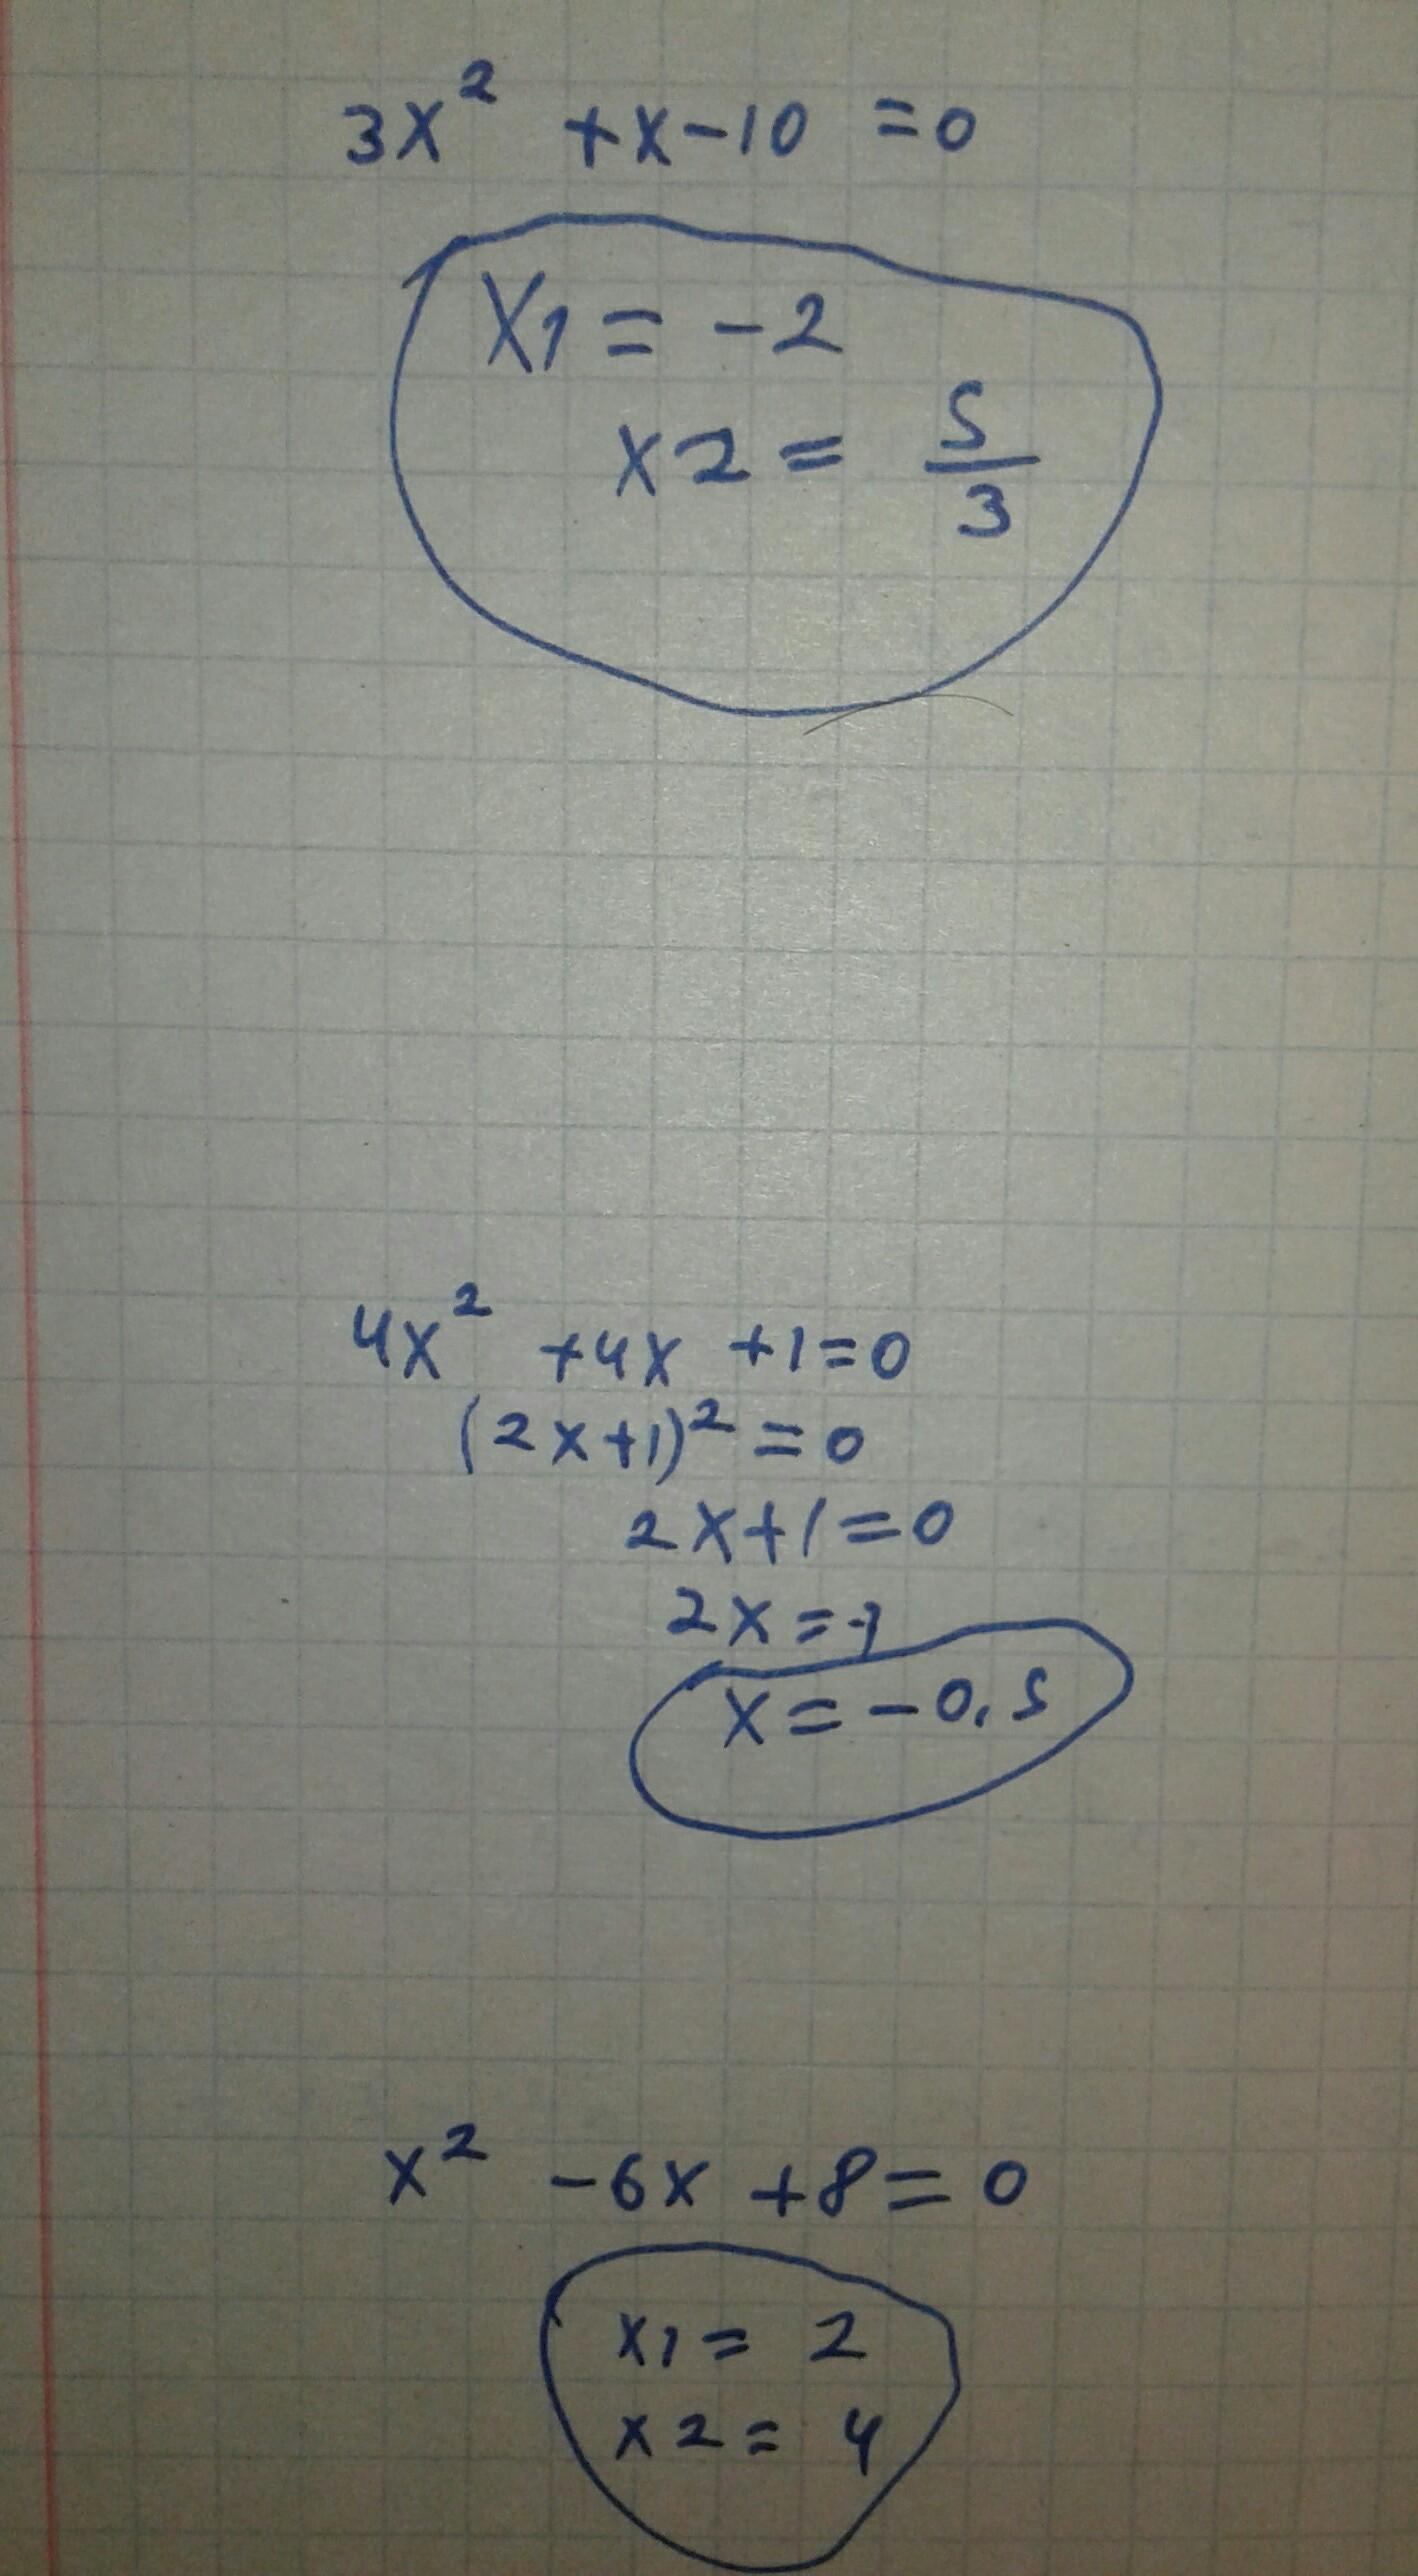 3x² +x-10 =0
X1= -2
x2= 5/3
4x² +4x +1=0
(2x+1)² =0
2x+1=0
2x=-1
x=-0,5
x² -6x +8= 0
x1= 2
x2= 4